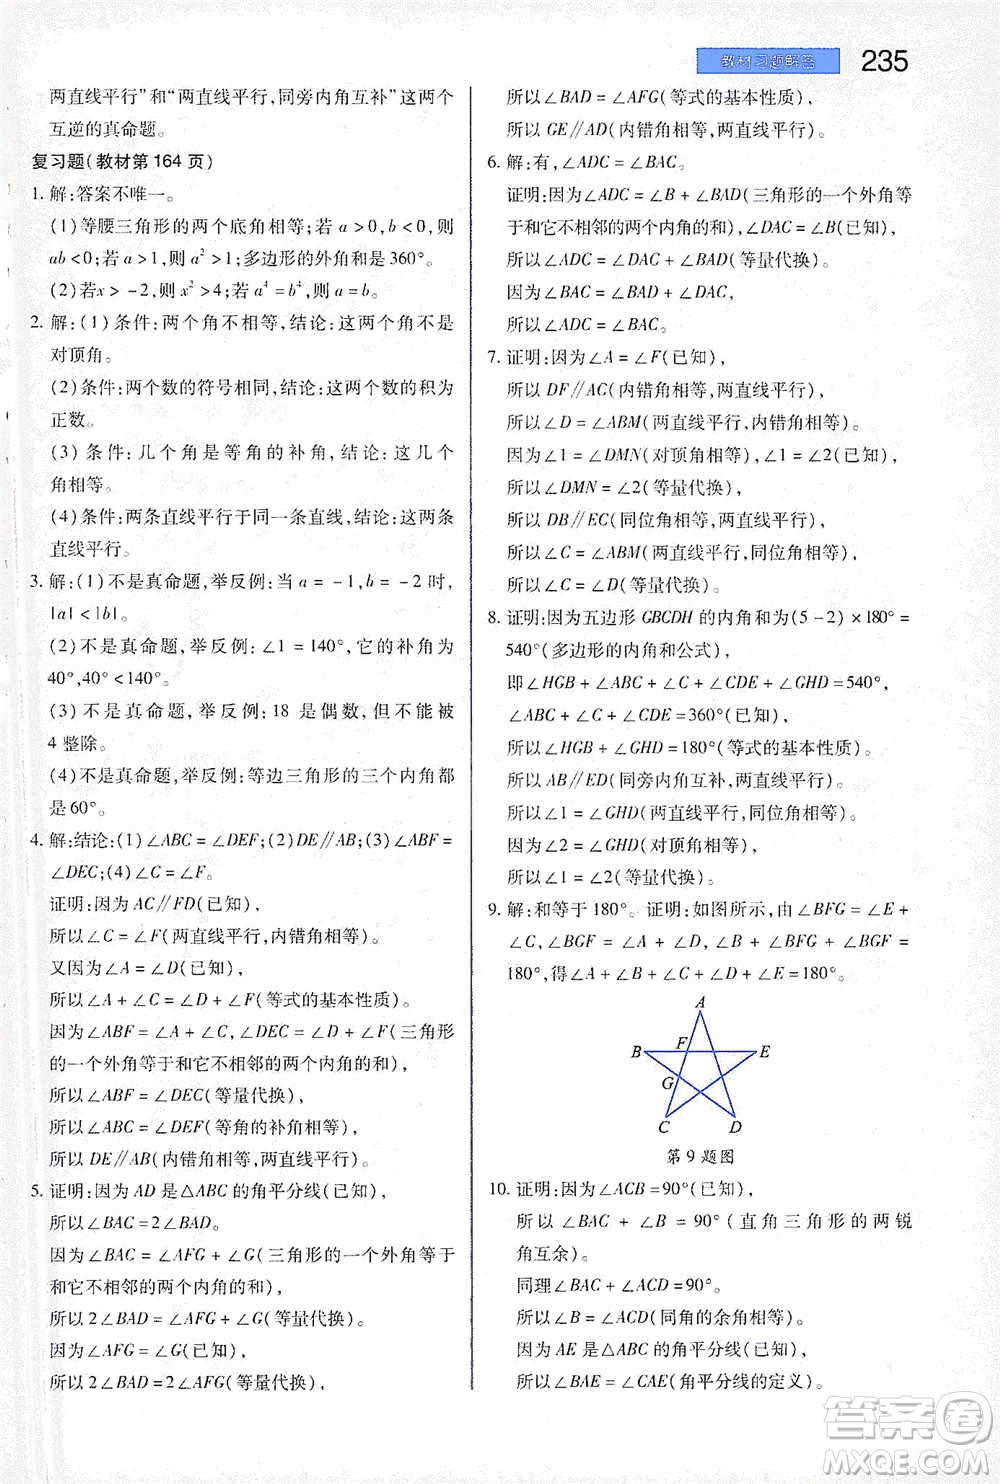 教材习题解答 235
两直线平行”和“两直线平行,同旁内角互补”这两个
互逆的真命题。
复习题(教材第 164 页)
1. 解:答案不唯一。
(1)等腰三角形的两个底角相等;若 a>0,b<0,则
ab<0;若 a>1,则 a²>1;多边形的外角和是360°。
(2)若x>-2,则 x²>4;若 a⁴=b⁴,则 a=b。
2. 解:(1)条件:两个角不相等,结论:这两个角不是
对顶角。
(2)条件:两个数的符号相同,结论:这两个数的积为
正数。
(3)条件:几个角是等角的补角,结论:这几个
角相等。
(4)条件:两条直线平行于同一条直线,结论:这两条
直线平行。
3. 解:(1)不是真命题,举反例:当 a=-1,b=-2时,
|a|<|b|。
(2)不是真命题,举反例:∠1=140°,它的补角为
40°,40°<140°。
(3)不是真命题,举反例:18 是偶数,但不能被
4 整除。
(4)不是真命题,举反例:等边三角形的三个内角都
是60°。
4. 解:结论:(1)∠ABC=∠DEF;(2)DE∥AB;(3)∠ABF=
∠DEC;(4)∠C=∠F。
证明:因为 AC∥FD(已知),
所以∠C=∠F(两直线平行,内错角相等)。
又因为∠A=∠D(已知),
所以∠A+∠C=∠D+∠F(等式的基本性质)。
因为∠ABF=∠A+∠C,∠DEC=∠D+∠F(三角形
的一个外角等于和它不相邻的两个内角的和),
所以∠ABF=∠DEC(等量代换),
所以∠ABC=∠DEF(等角的补角相等),
所以 DE∥AB(内错角相等,两直线平行)。
5. 证明:因为 AD 是△ABC 的角平分线(已知),
所以∠BAC=2∠BAD。
因为∠BAC=∠AFG+∠G(三角形的一个外角等于
和它不相邻的两个内角的和),
所以 2∠BAD=∠AFG+∠G(等量代换)。
因为∠AFG=∠G(已知),
所以 2∠BAD=2∠AFG(等量代换),
所以∠BAD=∠AFG(等式的基本性质),
所以 GE∥AD(内错角相等,两直线平行)。
6. 解:有,∠ADC=∠BAC。
证明:因为∠ADC=∠B+∠BAD(三角形的一个外角等
于和它不相邻的两个内角的和),∠DAC=∠B(已知),
所以∠ADC=∠DAC+∠BAD(等量代换)。
因为∠BAC=∠BAD+∠DAC,
所以∠ADC=∠BAC。
7. 证明:因为∠A=∠F(已知),
所以 DF∥AC(内错角相等,两直线平行),
所以∠D=∠ABM(两直线平行,内错角相等)。
因为∠1=∠DMN(对顶角相等),∠1=∠2(已知),
所以∠DMN=∠2(等量代换),
所以 DB∥EC(同位角相等,两直线平行),
所以∠C=∠ABM(两直线平行,同位角相等),
所以∠C=∠D(等量代换)。
8. 证明:因为五边形 GBCDH 的内角和为(5-2)×180°=
540°(多边形的内角和公式),
即∠HGB+∠ABC+∠C+∠CDE+∠GHD=540°,
∠ABC+∠C+∠CDE=360°(已知),
所以∠HGB+∠GHD=180°(等式的基本性质),
所以 AB∥ED(同旁内角互补,两直线平行)。
所以∠1=∠GHD(两直线平行,同位角相等),
因为∠2=∠GHD(对顶角相等),
所以∠1=∠2(等量代换)。
9. 解:和等于180°。证明:如图所示,由∠BFG=∠E+
∠C,∠BGF=∠A+∠D,∠B+∠BFG+∠BGF=
180°,得∠A+∠B+∠C+∠D+∠E=180°。
A
F
B E
G
C D
第 9 题图
10. 证明:因为∠ACB=90°(已知),
所以∠BAC+∠B=90°(直角三角形的两锐
角互余)。
同理∠BAC+∠ACD=90°。
所以∠B=∠ACD(同角的余角相等)。
因为 AE 是△ABC 的角平分线(已知),
所以∠BAE=∠CAE(角平分线的定义)。
答案圈
MXQE.COM